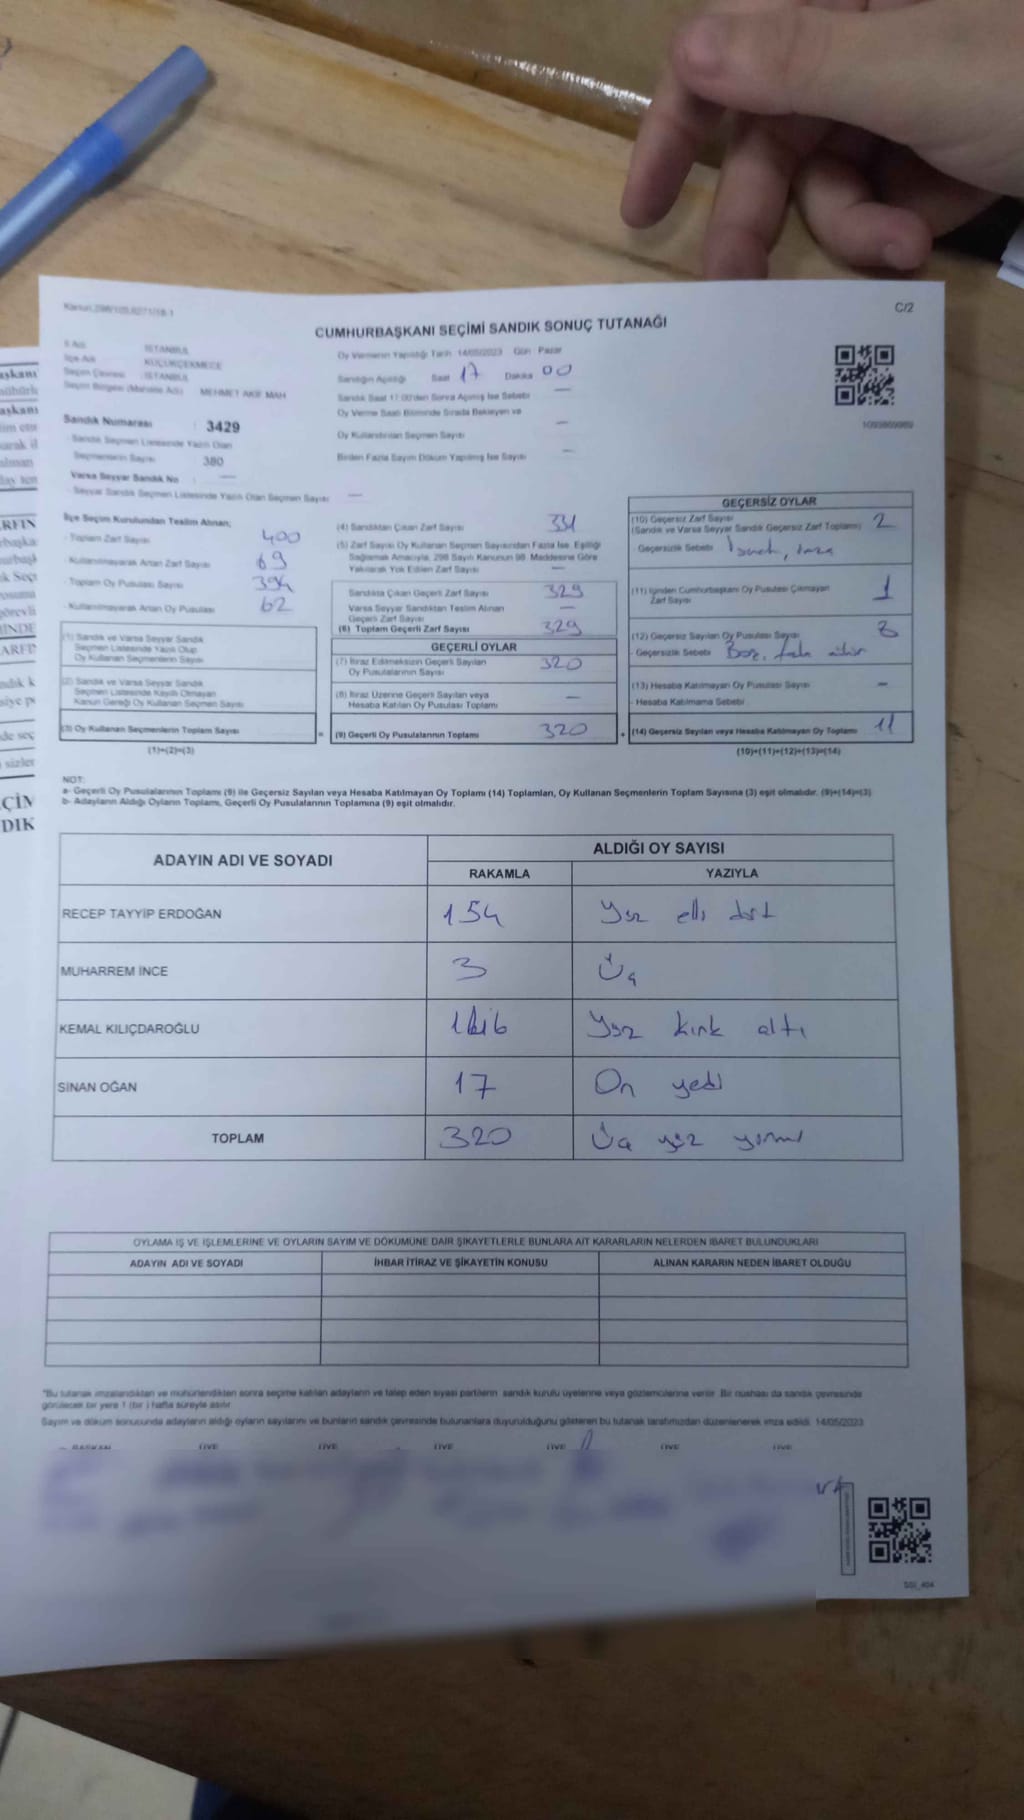 Kanun 298/105,6271/18-1
C/2
CUMHURBAŞKANI SEÇİMİ SANDIK SONUÇ TUTANAĞI
İl Adı İSTANBUL
İlçe Adı KÜÇÜKÇEKMECE
Seçim Çevresi İSTANBUL
Seçim Bölgesi (Mahalle Adı) MEHMET AKİF MAH
Sandık Numarası : 3429
- Sandık Seçmen Listesinde Yazılı Olan
Seçmenlerin Sayısı 380
Varsa Seyyar Sandık No —
- Seyyar Sandık Seçmen Listesinde Yazılı Olan Seçmen Sayısı —
Oy Vermenin Yapıldığı Tarih 14/05/2023 Gün Pazar
Sandığın Açıldığı Saat 17 Dakika 00
Sandık Saat 17:00'den Sonra Açılmış İse Sebebi —
Oy Verme Saati Bitiminde Sırada Bekleyen ve
Oy Kullandırılan Seçmen Sayısı —
Birden Fazla Sayım Döküm Yapılmış İse Sayısı —
İlçe Seçim Kurulundan Teslim Alınan;
- Toplam Zarf Sayısı 400
- Kullanılmayarak Artan Zarf Sayısı 69
- Toplam Oy Pusulası Sayısı 394
- Kullanılmayarak Artan Oy Pusulası 62
(1) Sandık ve Varsa Seyyar Sandık
Seçmen Listesinde Yazılı Olup
Oy Kullanan Seçmenlerin Sayısı
(2) Sandık ve Varsa Seyyar Sandık
Seçmen Listesinde Kayıtlı Olmayan
Kanun Gereği Oy Kullanan Seçmen Sayısı
(3) Oy Kullanan Seçmenlerin Toplam Sayısı
(1)+(2)=(3)
(4) Sandıktan Çıkan Zarf Sayısı 331
(5) Zarf Sayısı Oy Kullanan Seçmen Sayısından Fazla İse, Eşitliği
Sağlamak Amacıyla, 298 Sayılı Kanunun 98. Maddesine Göre
Yakılarak Yok Edilen Zarf Sayısı —
Sandıkta Çıkan Geçerli Zarf Sayısı 329
Varsa Seyyar Sandıktan Teslim Alınan
Geçerli Zarf Sayısı —
(6) Toplam Geçerli Zarf Sayısı 329
GEÇERLİ OYLAR
(7) İtiraz Edilmeksizin Geçerli Sayılan
Oy Pusulalarının Sayısı 320
(8) İtiraz Üzerine Geçerli Sayılan veya
Hesaba Katılan Oy Pusulası Toplamı —
= (9) Geçerli Oy Pusulalarının Toplamı 320
GEÇERSİZ OYLAR
(10) Geçersiz Zarf Sayısı 2
(Sandık ve Varsa Seyyar Sandık Geçersiz Zarf Toplamı)
- Geçersizlik Sebebi
(11) İçinden Cumhurbaşkanı Oy Pusulası Çıkmayan 1
Zarf Sayısı
(12) Geçersiz Sayılan Oy Pusulası Sayısı 8
- Geçersizlik Sebebi Boş, fazla
(13) Hesaba Katılmayan Oy Pusulası Sayısı —
- Hesaba Katılmama Sebebi
+ (14) Geçersiz Sayılan veya Hesaba Katılmayan Oy Toplamı 11
(10)+(11)+(12)+(13)=(14)
NOT:
a- Geçerli Oy Pusulalarının Toplamı (9) ile Geçersiz Sayılan veya Hesaba Katılmayan Oy Toplamı (14) Toplamları, Oy Kullanan Seçmenlerin Toplam Sayısına (3) eşit olmalıdır. (9)+(14)=(3)
b- Adayların Aldığı Oyların Toplamı, Geçerli Oy Pusulalarının Toplamına (9) eşit olmalıdır.
ADAYIN ADI VE SOYADI
ALDIĞI OY SAYISI
RAKAMLA YAZIYLA
RECEP TAYYİP ERDOĞAN 154 Yüz elli dört
MUHARREM İNCE 3 Üç
KEMAL KILIÇDAROĞLU 146 Yüz kırk altı
SİNAN OĞAN 17 On yedi
TOPLAM 320 Üç yüz yirmi
OYLAMA İŞ VE İŞLEMLERİNE VE OYLARIN SAYIM VE DÖKÜMÜNE DAİR ŞİKAYETLERLE BUNLARA AİT KARARLARIN NELERDEN İBARET BULUNDUKLARI
ADAYIN ADI VE SOYADI İHBAR İTİRAZ VE ŞİKAYETİN KONUSU ALINAN KARARIN NEDEN İBARET OLDUĞU
*Bu tutanak imzalandıktan ve mühürlendikten sonra seçime katılan adayların ve talep eden siyasi partilerin sandık kurulu üyelerine veya gözlemcilerine verilir. Bir nüshası da sandık çevresinde
görülecek bir yere 1 (bir) hafta süreyle asılır.
Sayım ve döküm sonucunda adayların aldığı oyların sayılarını ve bunların sandık çevresinde bulunanlara duyurulduğunu gösteren bu tutanak tarafımızdan düzenlenerek imza edildi. 14/05/2023
BAŞKAN ÜYE ÜYE ÜYE ÜYE ÜYE ÜYE